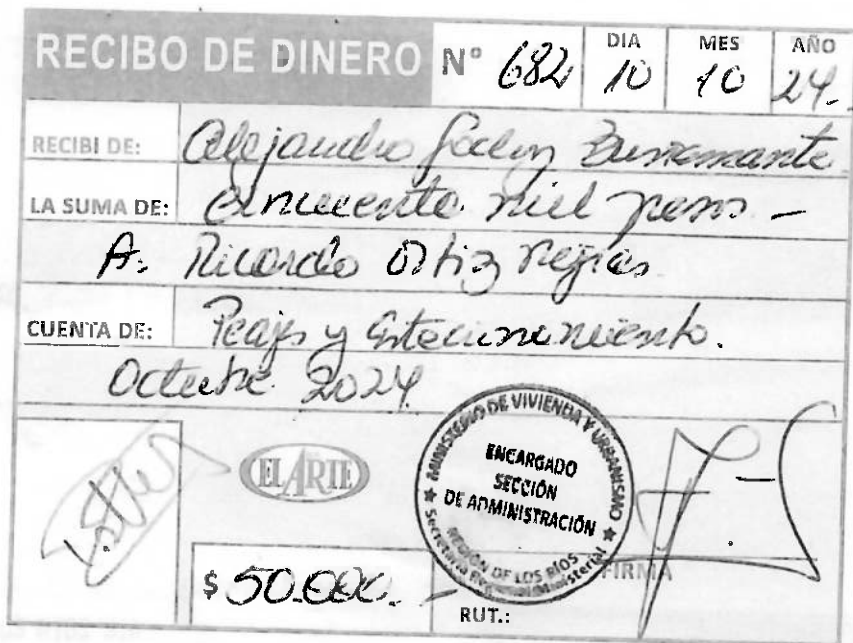 RECIBO DE DINERO N° 682 DIA 10 MES 10 AÑO 24.-
RECIBI DE: Alejandro Bustamante
LA SUMA DE: Cincuenta mil pesos -
A: Ricardo Ortiz
CUENTA DE: Peajes y Estacionamiento.
Octubre 2024
EL ARTE
MINISTERIO DE VIVIENDA Y URBANISMO
ENCARGADO
SECCIÓN
DE ADMINISTRACIÓN
REGIÓN DE LOS RÍOS
Secretaría Regional Ministerial
FIRMA
$ 50.000.-
RUT.: